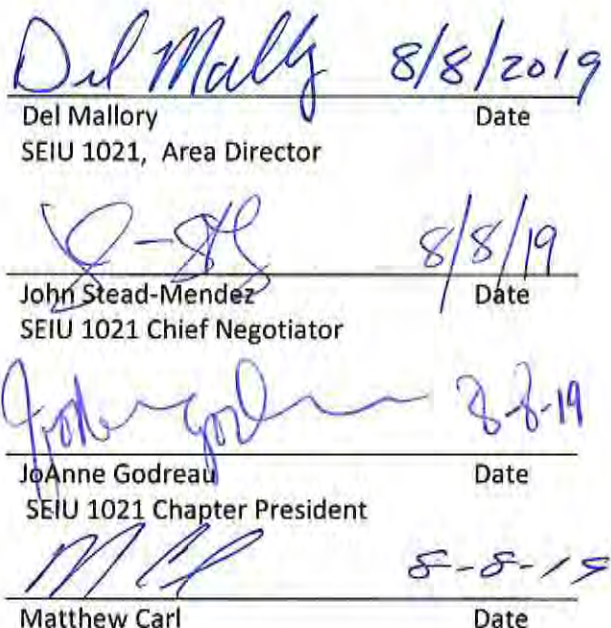 Del Mally 8/8/2019
Del Mallory Date
SEIU 1021, Area Director
8/8/19
John Stead-Mendez Date
SEIU 1021 Chief Negotiator
8-8-19
JoAnne Godreau Date
SEIU 1021 Chapter President
8-8-19
Matthew Carl Date